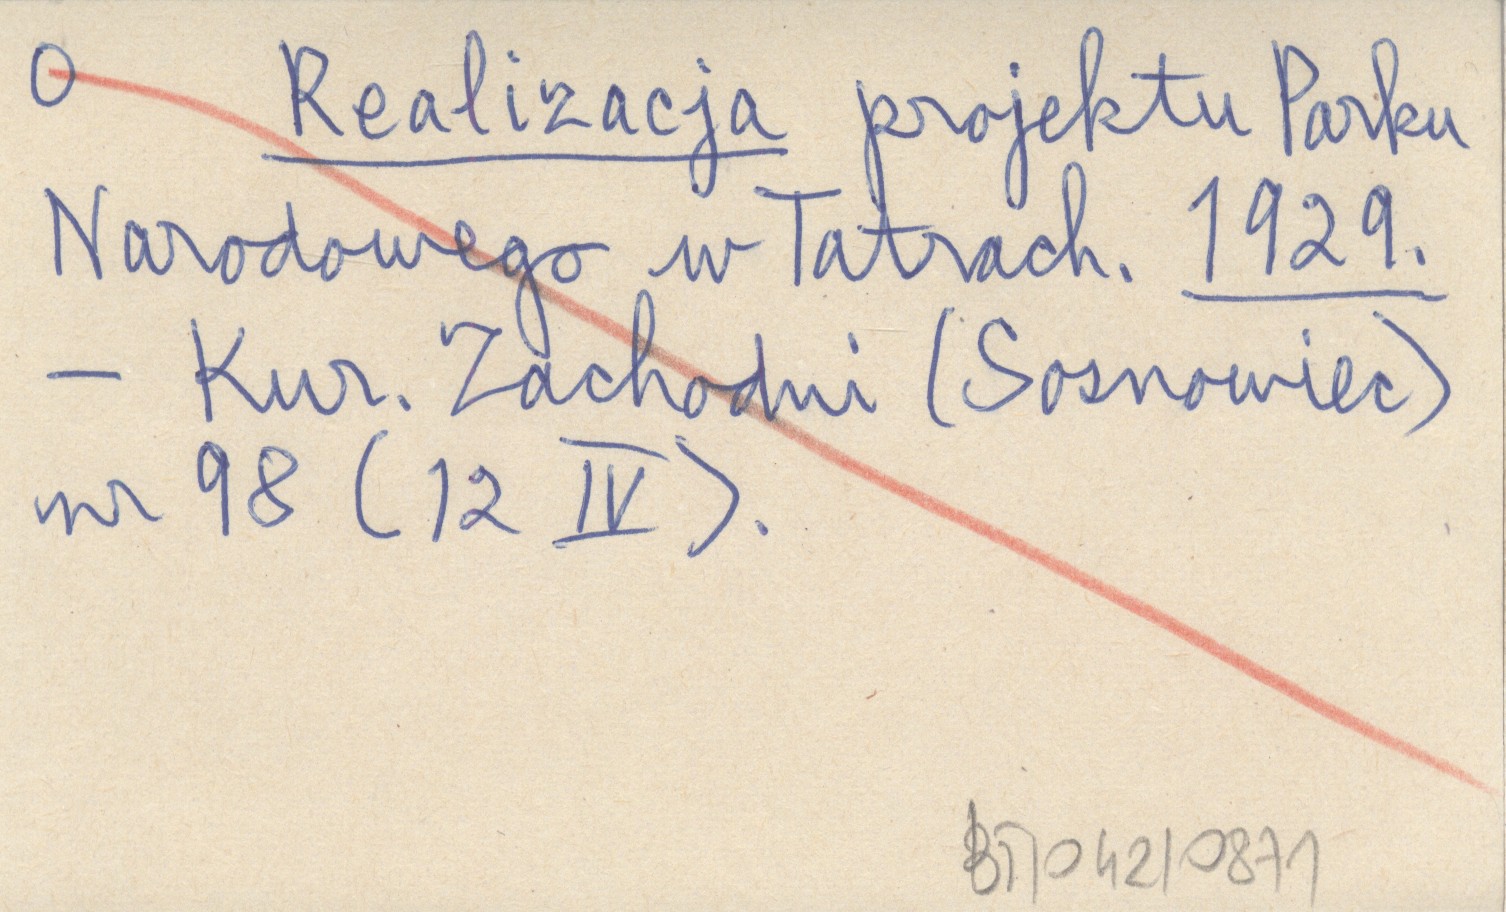 O Realizacja projektu Parku
Narodowego w Tatrach. 1929.
– Kur. Zachodni (Sosnowiec)
nr 98 (12 IV).
BT/042/0871